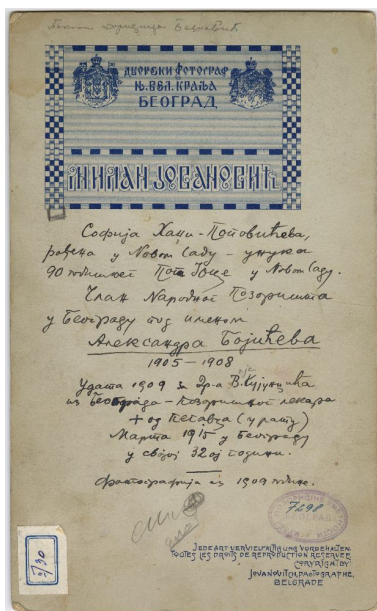 ДВОРСКИ ФОТОГРАФ
Њ. ВЕЛ. КРАЉА
БЕОГРАД
МИЛАН ЈОВАНОВИЋ
Софија Хаџи-Поповићева,
рођена у Новом Саду – унука
90 годишњег Попе у Новом Саду.
Члан Народног Позоришта
у Београду под именом
Александра Бојићева
1905–1908
Удата 1909 за Др-а В.
из Београда – Позоришног лекара
+ од Пегавца (у рату)
Марта 1915 у Београду
у својој 32ој години.
Фотографија из 1909 године.
7698
JEDE ART VERVIELFÄLTIGUNG VORBEHALTEN.
TOUTES LES DROITS DE REPRODUCTION RESERVES
COPYRIGHT BY
JOVANOVITCH, PHOTOGRAPHE,
BELGRADE